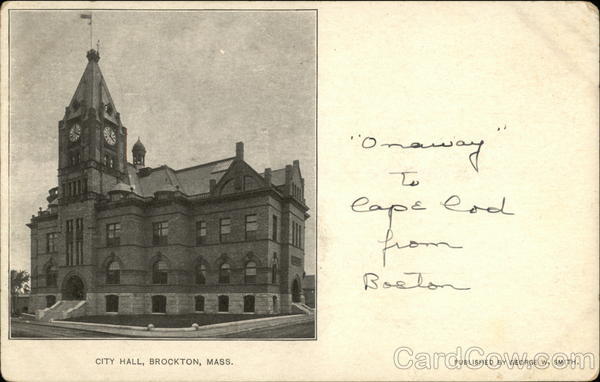 "Onaway"
To
Cape Cod
from
Boston
CITY HALL, BROCKTON, MASS.
PUBLISHED BY GEORGE W. SMITH.
CardCow.com